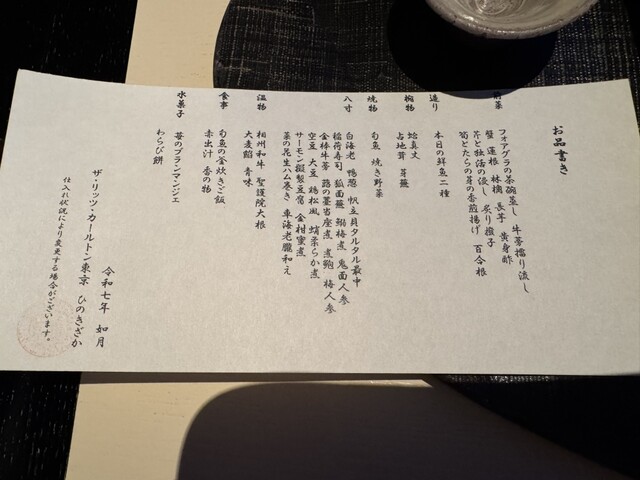 お品書き
前菜
フォアグラの茶碗蒸し 牛蒡擂り流し
蟹 蓮根 林檎 長芋 黄身酢
芹と独活の浸し 炙り撥子
筍とたらの芽の香煎揚げ 百合根
造り
本日の鮮魚二種
椀物
蛤真丈
占地茸 芽蕪
焼物
旬魚 焼き野菜
八寸
白海老 鴨葱 帆立貝タルタル最中
稲荷寿司 狐面蕪 鰯梅煮 鬼面人参
金棒牛蒡 蕗の薹当座煮 煮鮑 梅人参
空豆 大豆 鶏松風 蛸柔らか煮
サーモン擬製豆腐 金柑蜜煮
菜の花生ハム巻き 車海老朧和え
温物
相州和牛 聖護院大根
大麦餡 青味
食事
旬魚の釜炊きご飯
赤出汁 香の物
水菓子
苺のブランマンジェ
わらび餅
令和七年 如月
ザ・リッツ・カールトン東京 ひのきざか
仕入れ状況により変更する場合がございます。